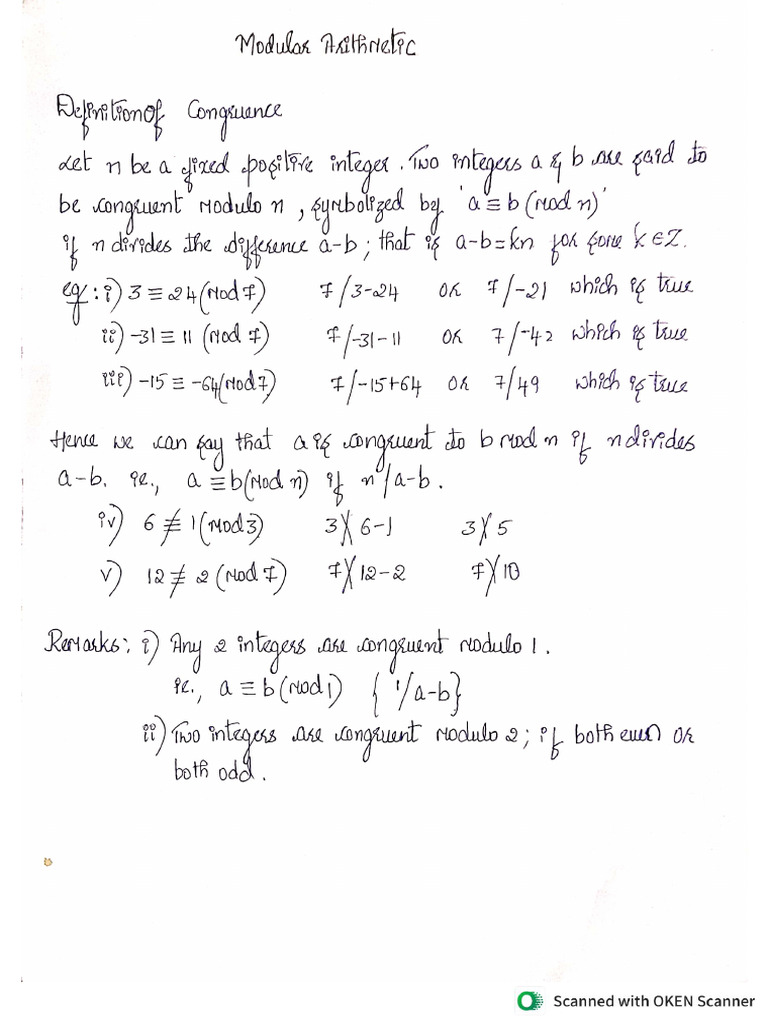 Modular Arithmetic
Definition of Congruence
Let n be a fixed positive integer. Two integers a & b are said to
be congruent modulo n, symbolized by 'a ≡ b (mod n)'
if n divides the difference a-b; that is a-b=kn for some k ∈ Z.
eg: i) 3 ≡ 24 (mod 7) 7/3-24 or 7/-21 which is true
ii) -31 ≡ 11 (mod 7) 7/-31-11 or 7/-42 which is true
iii) -15 ≡ -64 (mod 7) 7/-15+64 or 7/49 which is true
Hence we can say that a is congruent to b mod n if n divides
a-b. ie., a ≡ b (mod n) if n/a-b.
iv) 6 ≢ 1 (mod 3) 3∤6-1 3∤5
v) 12 ≢ 2 (mod 7) 7∤12-2 7∤10
Remarks: i) Any 2 integers are congruent modulo 1.
ie., a ≡ b (mod 1) { 1/a-b}
ii) Two integers are congruent modulo 2; if both even or
both odd.
Scanned with OKEN Scanner